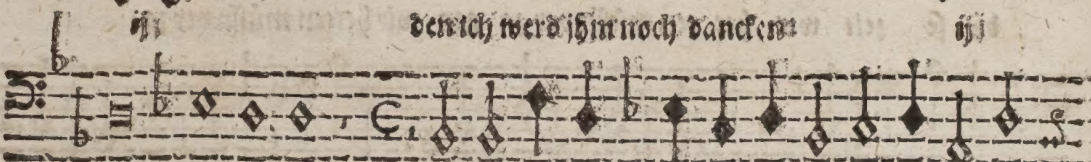 ij: den ich werd jhm noch dancken: ij: